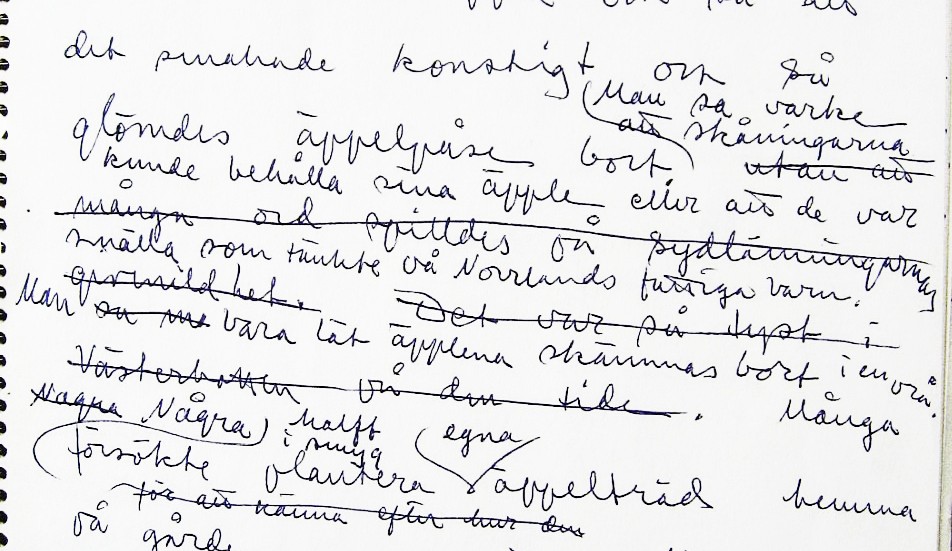 det smakade konstigt och så
(Man sa varke
glömdes äppelpåsen bort att skåningarna
utan att
kunde behålla sina äpple eller att de var
många ord spilldes på sydlänningarnas
snälla som tänkte på Norrlands fattiga barn.
givmildhet. Det var så tyst i
Man sa me bara lät äpplena skämmas bort i en vrå.
Västerbotten på den tide. Många
Några Några) halft
i smyg (egna
försökte plantera äppelträd hemma
för att känna efter hur den
på gårde